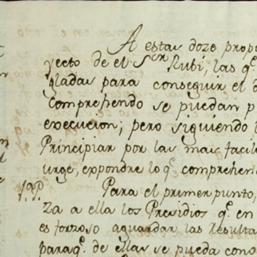 A estas doze propo
yecto de el Sor Rubi, las q.
gladas para conseguir el d
Comprehendo se puedan p
execucion; pero siguiendo l
Principiar por las mas facil
urge, expondre lo q. comprehend
Para el primer punto,
za a ella los Presidios q. en
es forzoso aguardar las resulta
paraq. de ellas se pueda cono